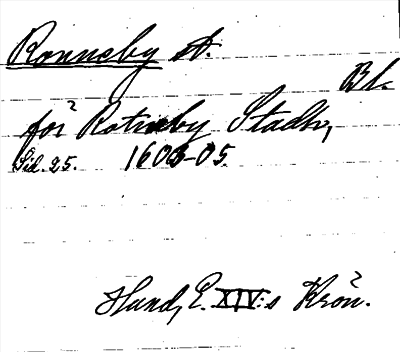 Ronneby st.
Bl.
för Rotneby Stadh,
Sid. 25. 1603-05.
Hund, E. XIV:s Krön.